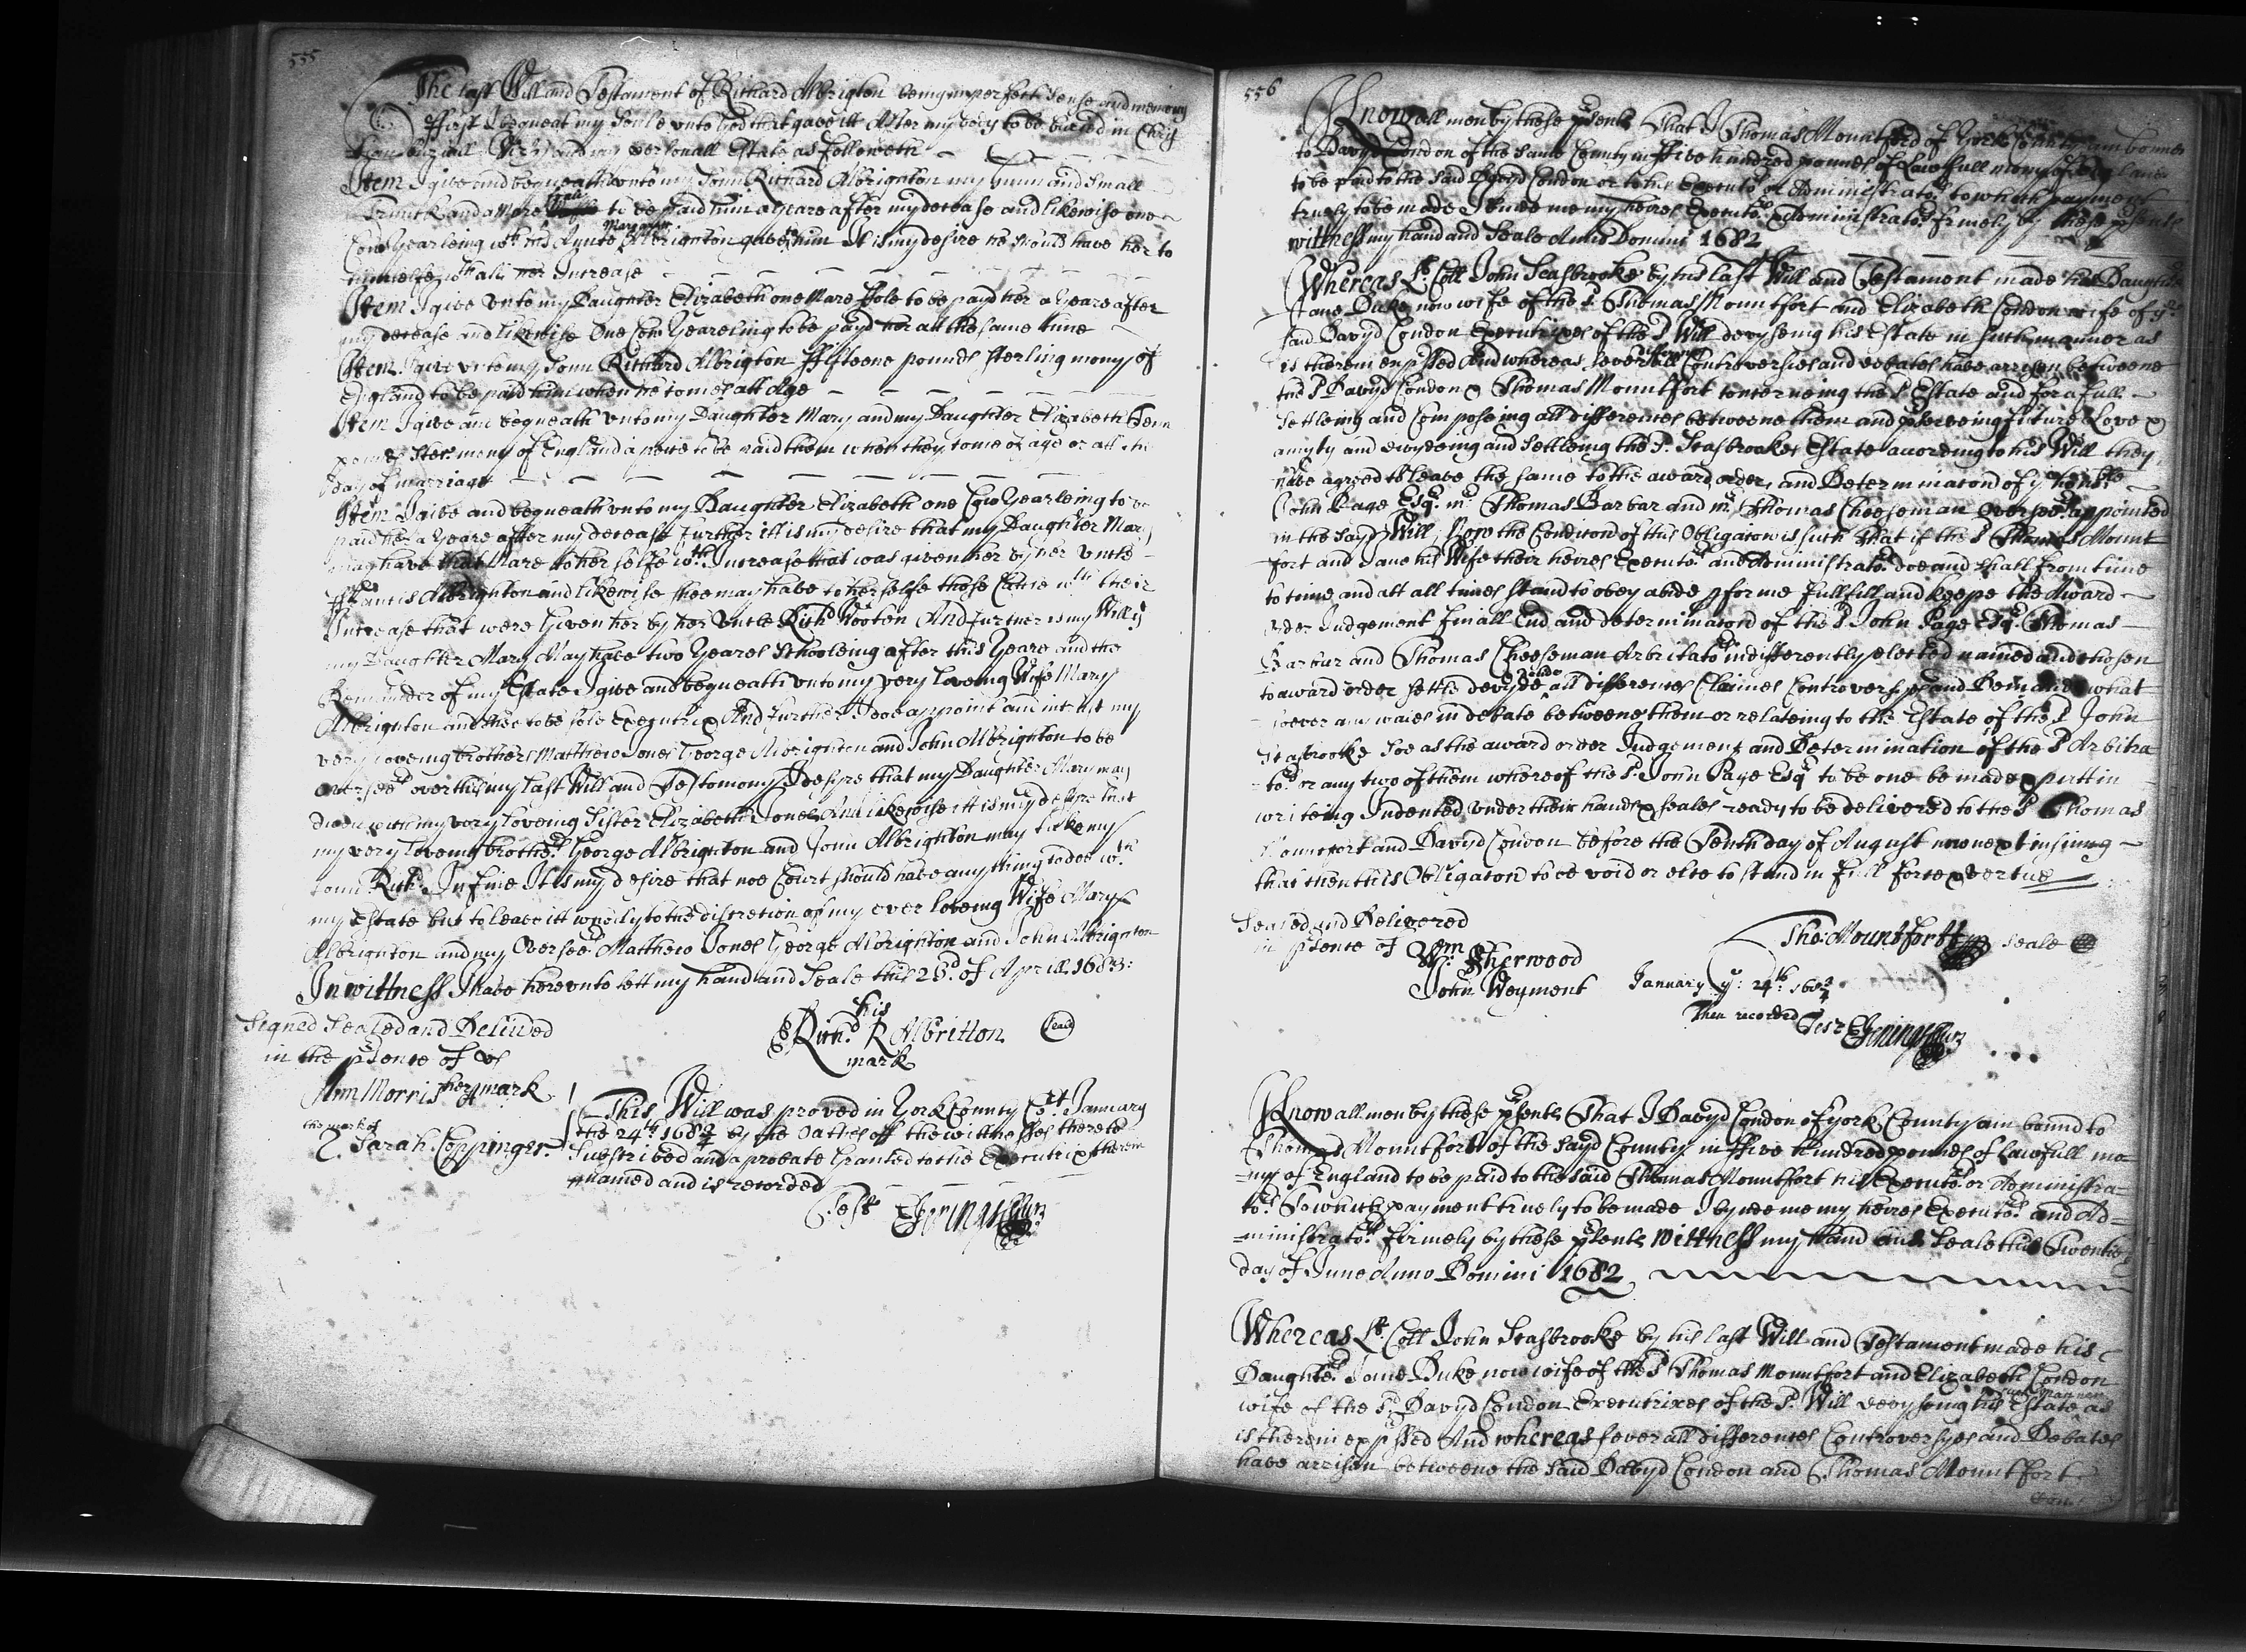 555
The last Will and Testament of Richard Albrigton being in perfect Sense and memory
ffirst I bequeat my Soule vnto God that gave itt After my body to be buried in
buriall personall Estate as followeth
Item I give and bequeath vnto my Sonn Richard Albrighton my Gunn and Small
Trunck and a Mare ffole to be paid him a yeare after my decease and likewise one
Cow Yearleing wth his Aunte Margarett Albrighton gave to him It is my desire he should have her to
himselfe wth all her Increase
Item I give vnto my Daughter Elizabeth one Mare ffole to be payd her a yeare after
my decease and likewise One Cow Yearelling to be payd her att the same time
Item I give vnto my Sonn Richard Albrigton ffifteene pounds sterling mony of
England to be paid him when he comes att Age
Item I give and bequeath vnto my Daughter Mary and my Daughter Elizabeth Tenn
pounds Ster: mony of England a peice to be paid them when they come of age or att the
day of marriage
Item I give and bequeath vnto my Daughter Elizabeth one Cow Yearleing to be
paid her a Yeare after my decease further itt is my desire that my Daughter Mary
may have that Mare to her selfe wth Increase that was given her by her Vncle
ffrancis Albrighton and likewise shee may have to herselfe those Cattle wth their
Increase that were Given her by her Vncle Richd Wooton And further is my Will
my Daughter Mary May have two Yeares Schooleing after this Yeare and the
Remainder of my Estate I give and bequeath vnto my very loveing Wife Mary
Albrighton and shee to be sole Executrix And further I doe appoint and intrust my
very loveing brothers Matthew Jones George Albrighton and John Albrighton to be
overseers over this my last Will and Testomony I desire that my Daughter Mary may
dwell with my very loveing Sister Elizabeth Jones And likewise itt is my desire that
my very loveing brothers George Albrighton and John Albrighton may take my
sonn Rich: In fine It is my desire that noe Court should have any thing to doe wth
my Estate but to leave itt wholly to the discretion of my ever loveing Wife Mary
Albrighton and my Overseers Matthew Jones George Albrighton and John Albrighton
In wittness I have herevnto sett my hand and Seale this 26d of Aprill 1683:
Signed Sealed and Delived
in the psence of vs
his
Richd R Albritton seal
mark
Ann Morris her mark
the mark of
Sarah Coppinger
This Will was proved in York County Cort January
the 24th 1683/4 by the Oathes off the wittnesses thereto
Subscribed and a probate Granted to the Executrix therein
named and is recorded
Test
556
Know all men by these psents That I Thomas Mountford of York County am bound
to Davyd Condon of the same County in ffive hundred pounds of Lawfull mony of England
to be paid to the said Davyd Condon or to his Executors or Administrators to which payment
truely to be made I binde me my heires Executors & Administrators firmely by these psents
wittness my hand and Seale Anno Domini 1682
Whereas Lt Coll John Seasbrooke by his last Will and Testament made his Daughters
Jane Duke now wife of the sd Thomas Mountfort and Elizabeth Condon wife of ye
said Davyd Condon Executrixes of the sd Will devyseing his Estate in such manner as
is therein expssed And whereas severall differences Controversies and debates have arrisen betweene
the sd Davyd Condon & Thomas Mountfort concerneing the sd Estate and for a full
Settleing and Composeing all differences betweene them and pserveing future Love &
amyty and devydeing and Settleing the sd Seasbrookes Estate according to his Will they
have agreed to leave the same to the award order and Determinacon of ye honble
John Page Esqr mr Thomas Barbar and mr Thomas Cheeseman Overseers appointed
in the sayd Will, Now the Condicon of this Obligacon is such That if the sd Thomas Mount
fort and Jane his Wife their heires Executors and Administrators doe and shall from time
to time and att all times stand to obey abide pforme fullfill and keepe the Award
order Judgement finall End and determinacon of the sd John Page Esqr Thomas
Barbur and Thomas Cheeseman Arbitators indifferently elected named and chosen
to award order settle devyde all differences Claimes Controversyes and Demands what
soever any waies in debate betweene them or relateing to the Estate of the sd John
Seasbrooke Soe as the award order Judgement and Determination of the sd Arbitra
tors or any two of them whereof the sd John Page Esqr to be one be made & putt in
writeing Indented vnder their hands & seales ready to be delivered to the sd Thomas
Mountfort and Davyd Condon before the Tenth day of August now next insuing
that then this Obligacon to be void or else to stand in full force & vertue
Sealed and Delivered
in psence of
Wm Sherwood
John Weyment
Tho: Mountfortt seale
January ye: 24th 1683/4
Then recorded
Test
Know all men by these psents That I Davyd Condon of York County am bound to
Thomas Mountfort of the sayd County in ffive hundred pounds of Lawfull mo
ny of England to be paid to the said Thomas Mountfort his Executors or Administra
tors To which payment truely to be made I bynde me my heires Executors and Ad
ministrators firmely by these psents wittness my hand and Seale this Twentieth
day of June Anno Domini 1682
Whereas Lt Coll John Seasbrooke by his last Will and Testament made his
Daughters Jane Duke now wife of the sd Thomas Mountfort and Elizabeth Condon
wife of the sd Davyd Condon Executrixes of the sd Will devyseing his Estate in such Manner as
is therein expssed And whereas severall differences Controversyes and Debates
have arrisen betweene the said Davyd Condon and Thomas Mountfort